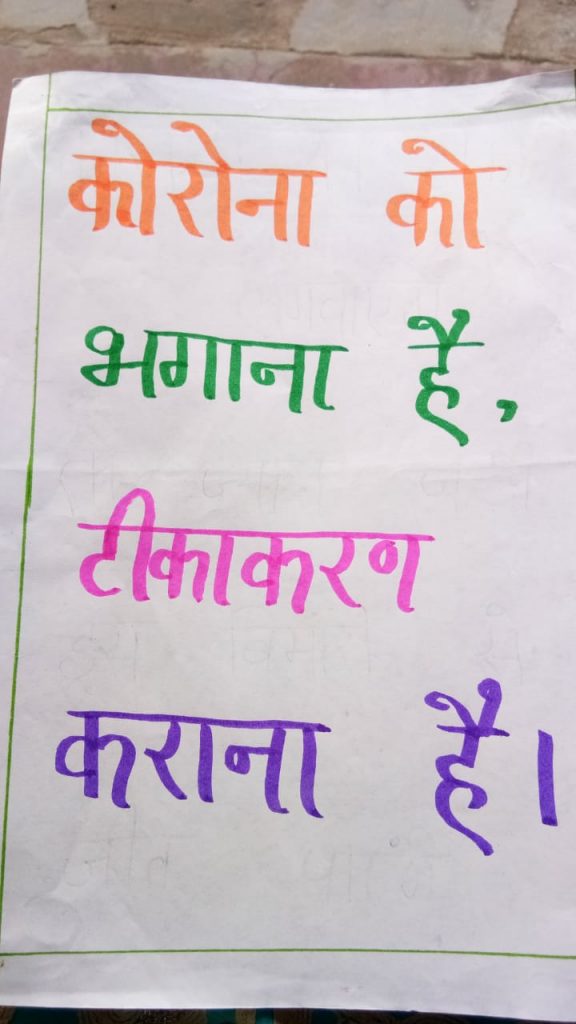 कोरोना को
भगाना है,
टीकाकरण
कराना है।